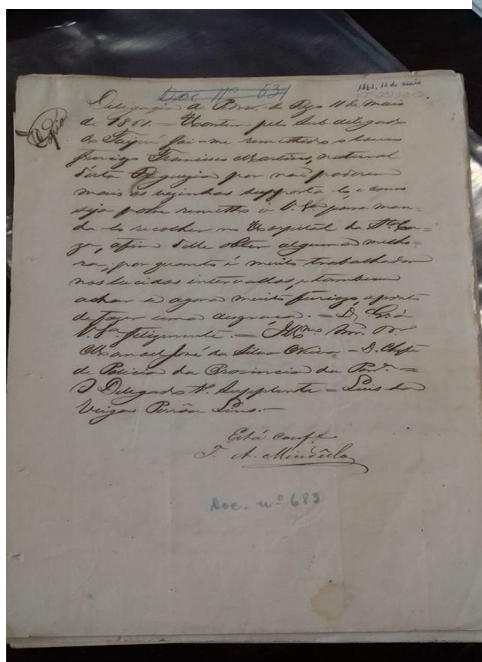 Doc Nº 634
1861, 11 de maio
Cópia
Delegacia de 11 de maio
de 1861. – Hontem pelo Subdelegado
do foi-me remettido o louco
furioso Francisco Martins, natural
desta freguezia por não poderem
mais os vizinhos supporta-lo, e como
seja pobre remetto a V. Sª para man-
da-lo recolher no Hospital da
afim delle obter alguma melho-
ra, por quanto é muito trabalhador
nos lucidos intervallos, e tambem
achar-se agora muito furioso, a ponto
de fazer uma desgraça. – Ds. Gde
a V. Sª – Illmo Snr. Dr
Manoel José da Silva – D. Chefe
de Policia da Provincia do
O Delegado 1º Supplente – Luis da
Veiga
Está confe
F. A. Mindêllo
Doc. nº 683